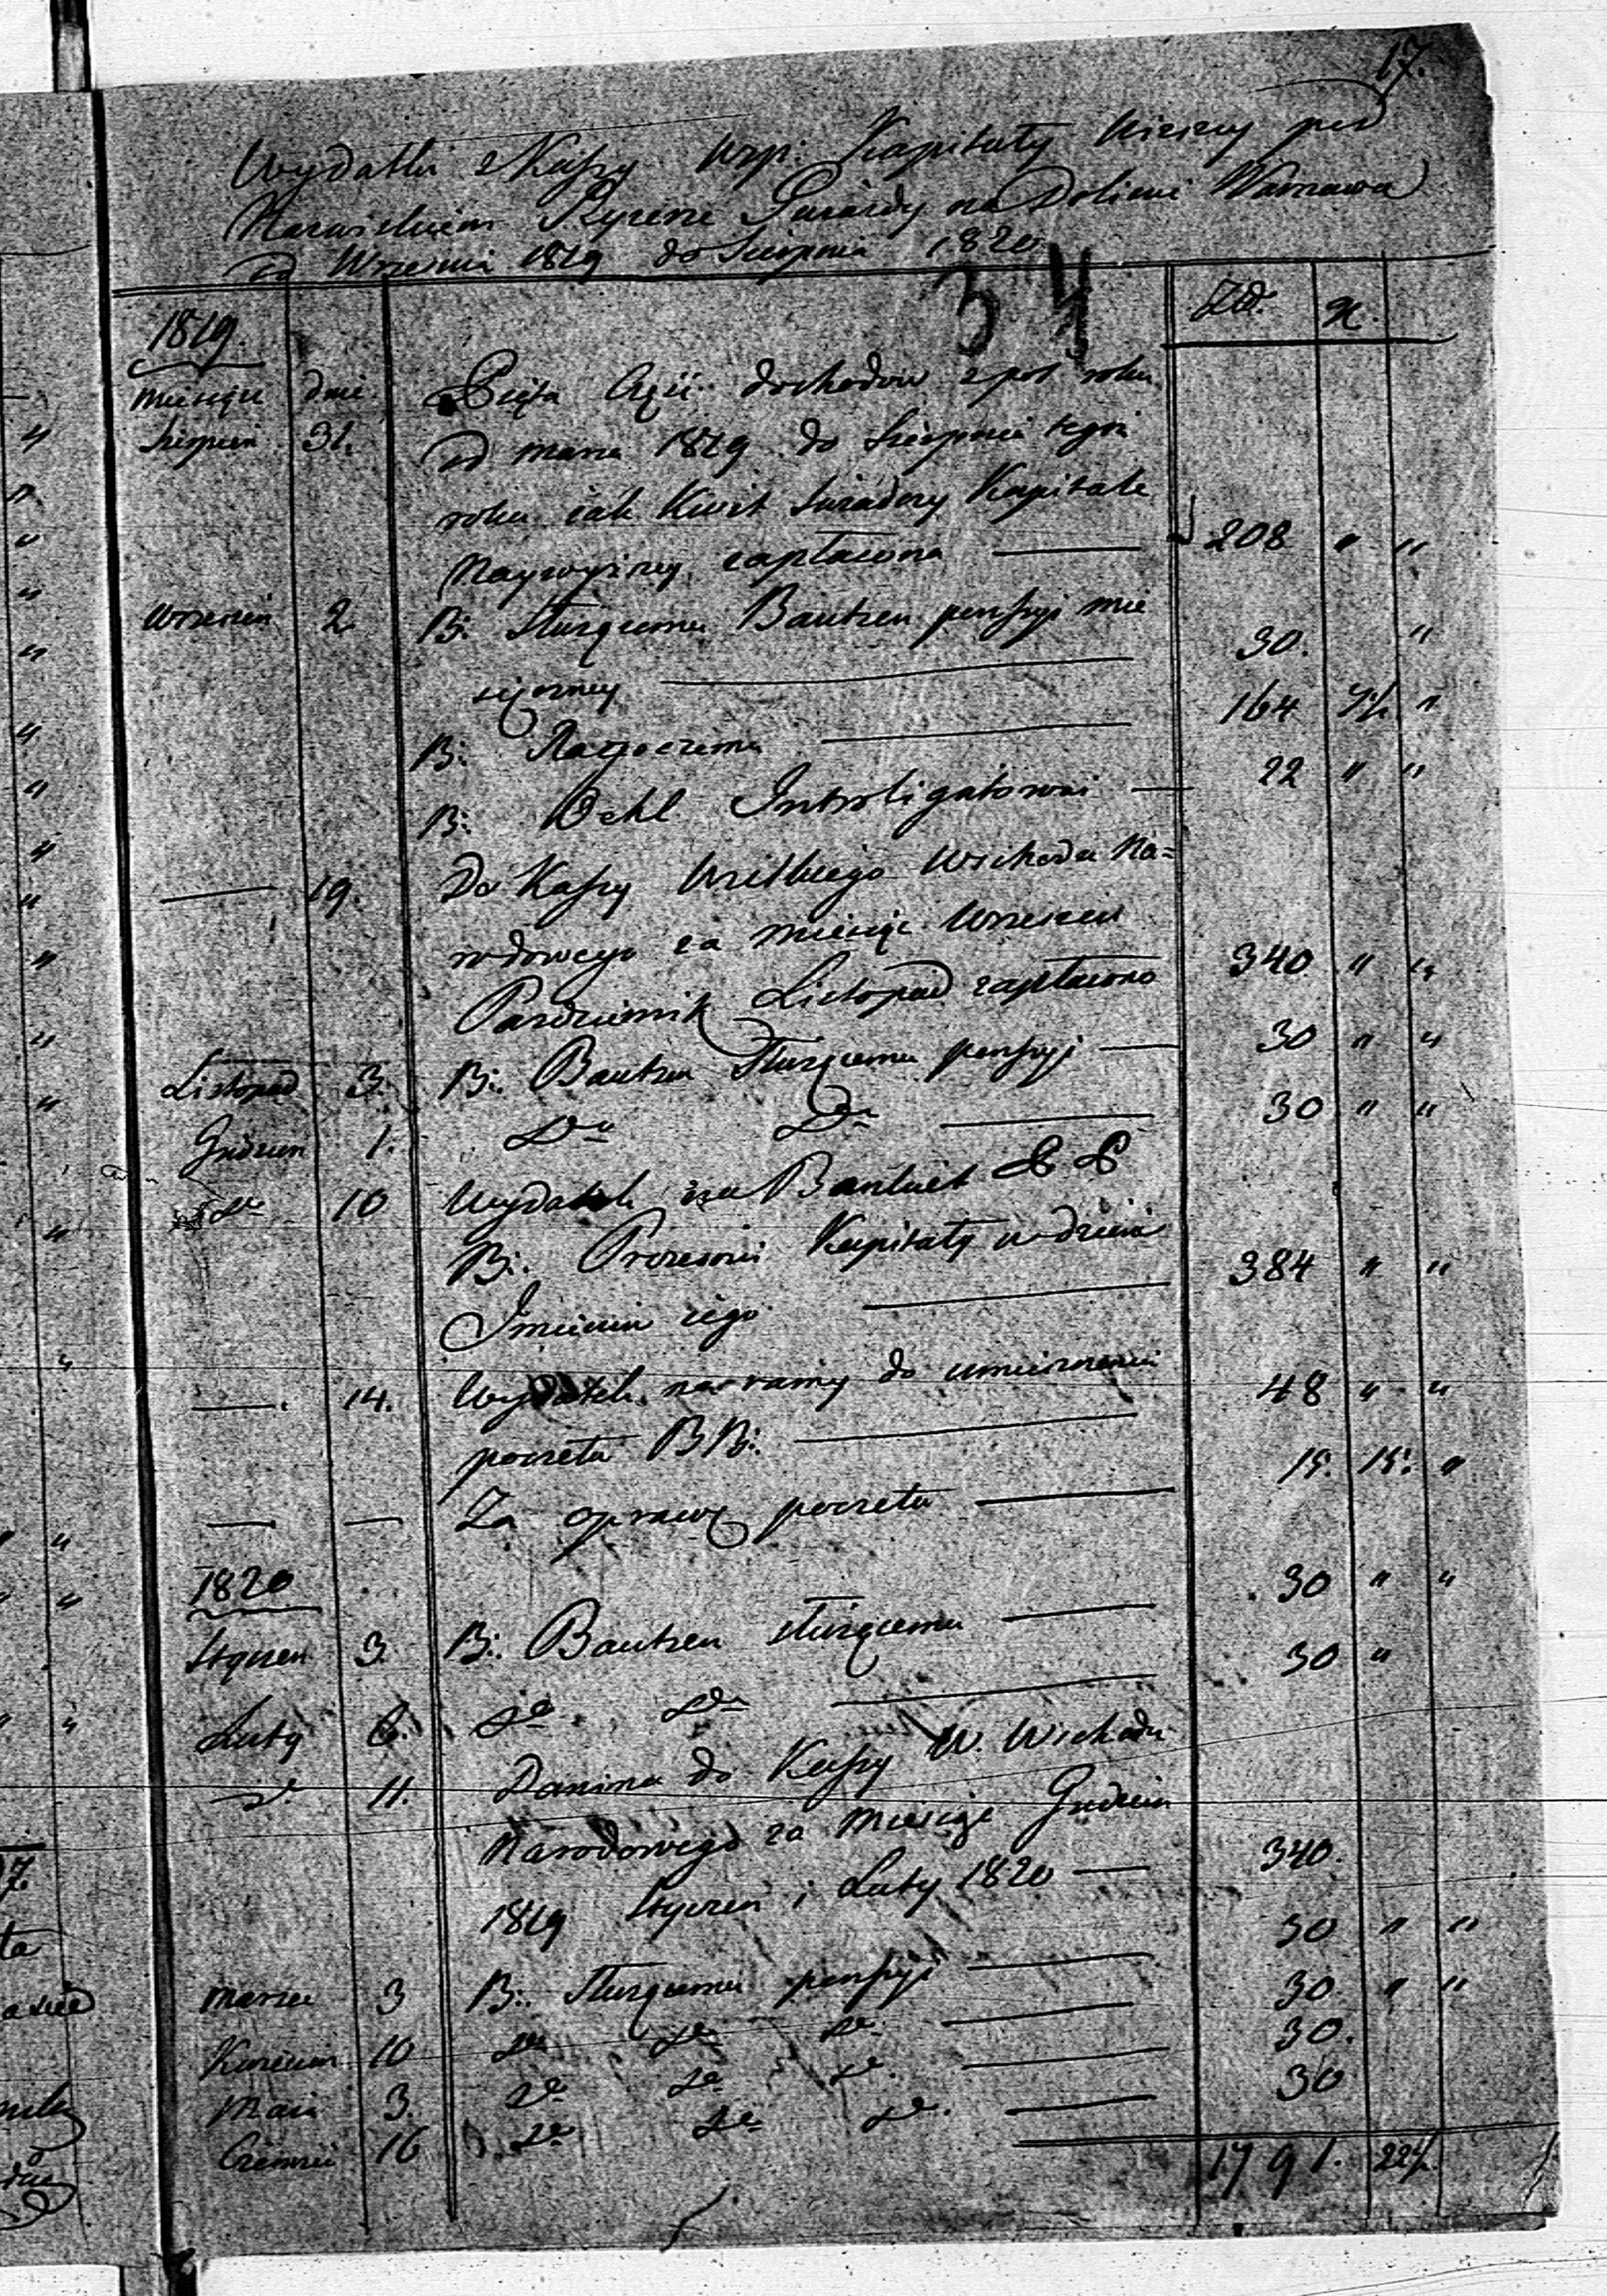 17.
Wydatki z Kassy Wsp: Kapituły Niższey pod
Nazwiskiem Rycerze Gwiazdy na Dolinie Warszawa
od Września 1819 do Sierpnia 1820
34
Zł. gr.
1819.
miesiące dnie Piąta Części dochodow z puł roku
Sierpień 31. od marca 1819 do Sierpnia tegoż
roku iak Kwit świadczy Kapitule
Naywyższey zapłacona — 208 " "
Wrzesień 2 B: Służącemu Bautzen penssyi mie
sięczney — 30. "
B: — 164 7½ "
B: Introligatorowi — 22 " "
— 19. Do Kassy Wielkiego Wschodu Na=
rodowego za miesiąc Wrzesień
Pazdziernik Listopad zapłacono 340 " "
Listopad 3. B: Bautzen Służącemu penssyi — 30 " "
Grudzień 1. Do Do — 30 " "
Do 10 Wydatek na Bankiet
B: Prezesowi Kapituły w dzień
Imienin iego — 384 " "
— 14. Wydatek na ramy do umieszczenia
pocztu BB: — 48 " "
— — Za oprawę pocztu — 15. 15. "
1820
Styczeń 3. B: Bautzen służącemu — 30 " "
Luty 6. Do Do — 30 "
Do 11. Danina do Kassy W. Wschodu
Narodowego za Miesiące Grudzień
1819 Styczeń i Luty 1820 — 340.
Marzec 3 B: Służącemu penssyi — 30 " "
Kwiecień 10 Do Do Do — 30. " "
Mai 3. Do Do Do — 30.
Czerwiec 16 Do Do Do. — 30
1791. 22½.